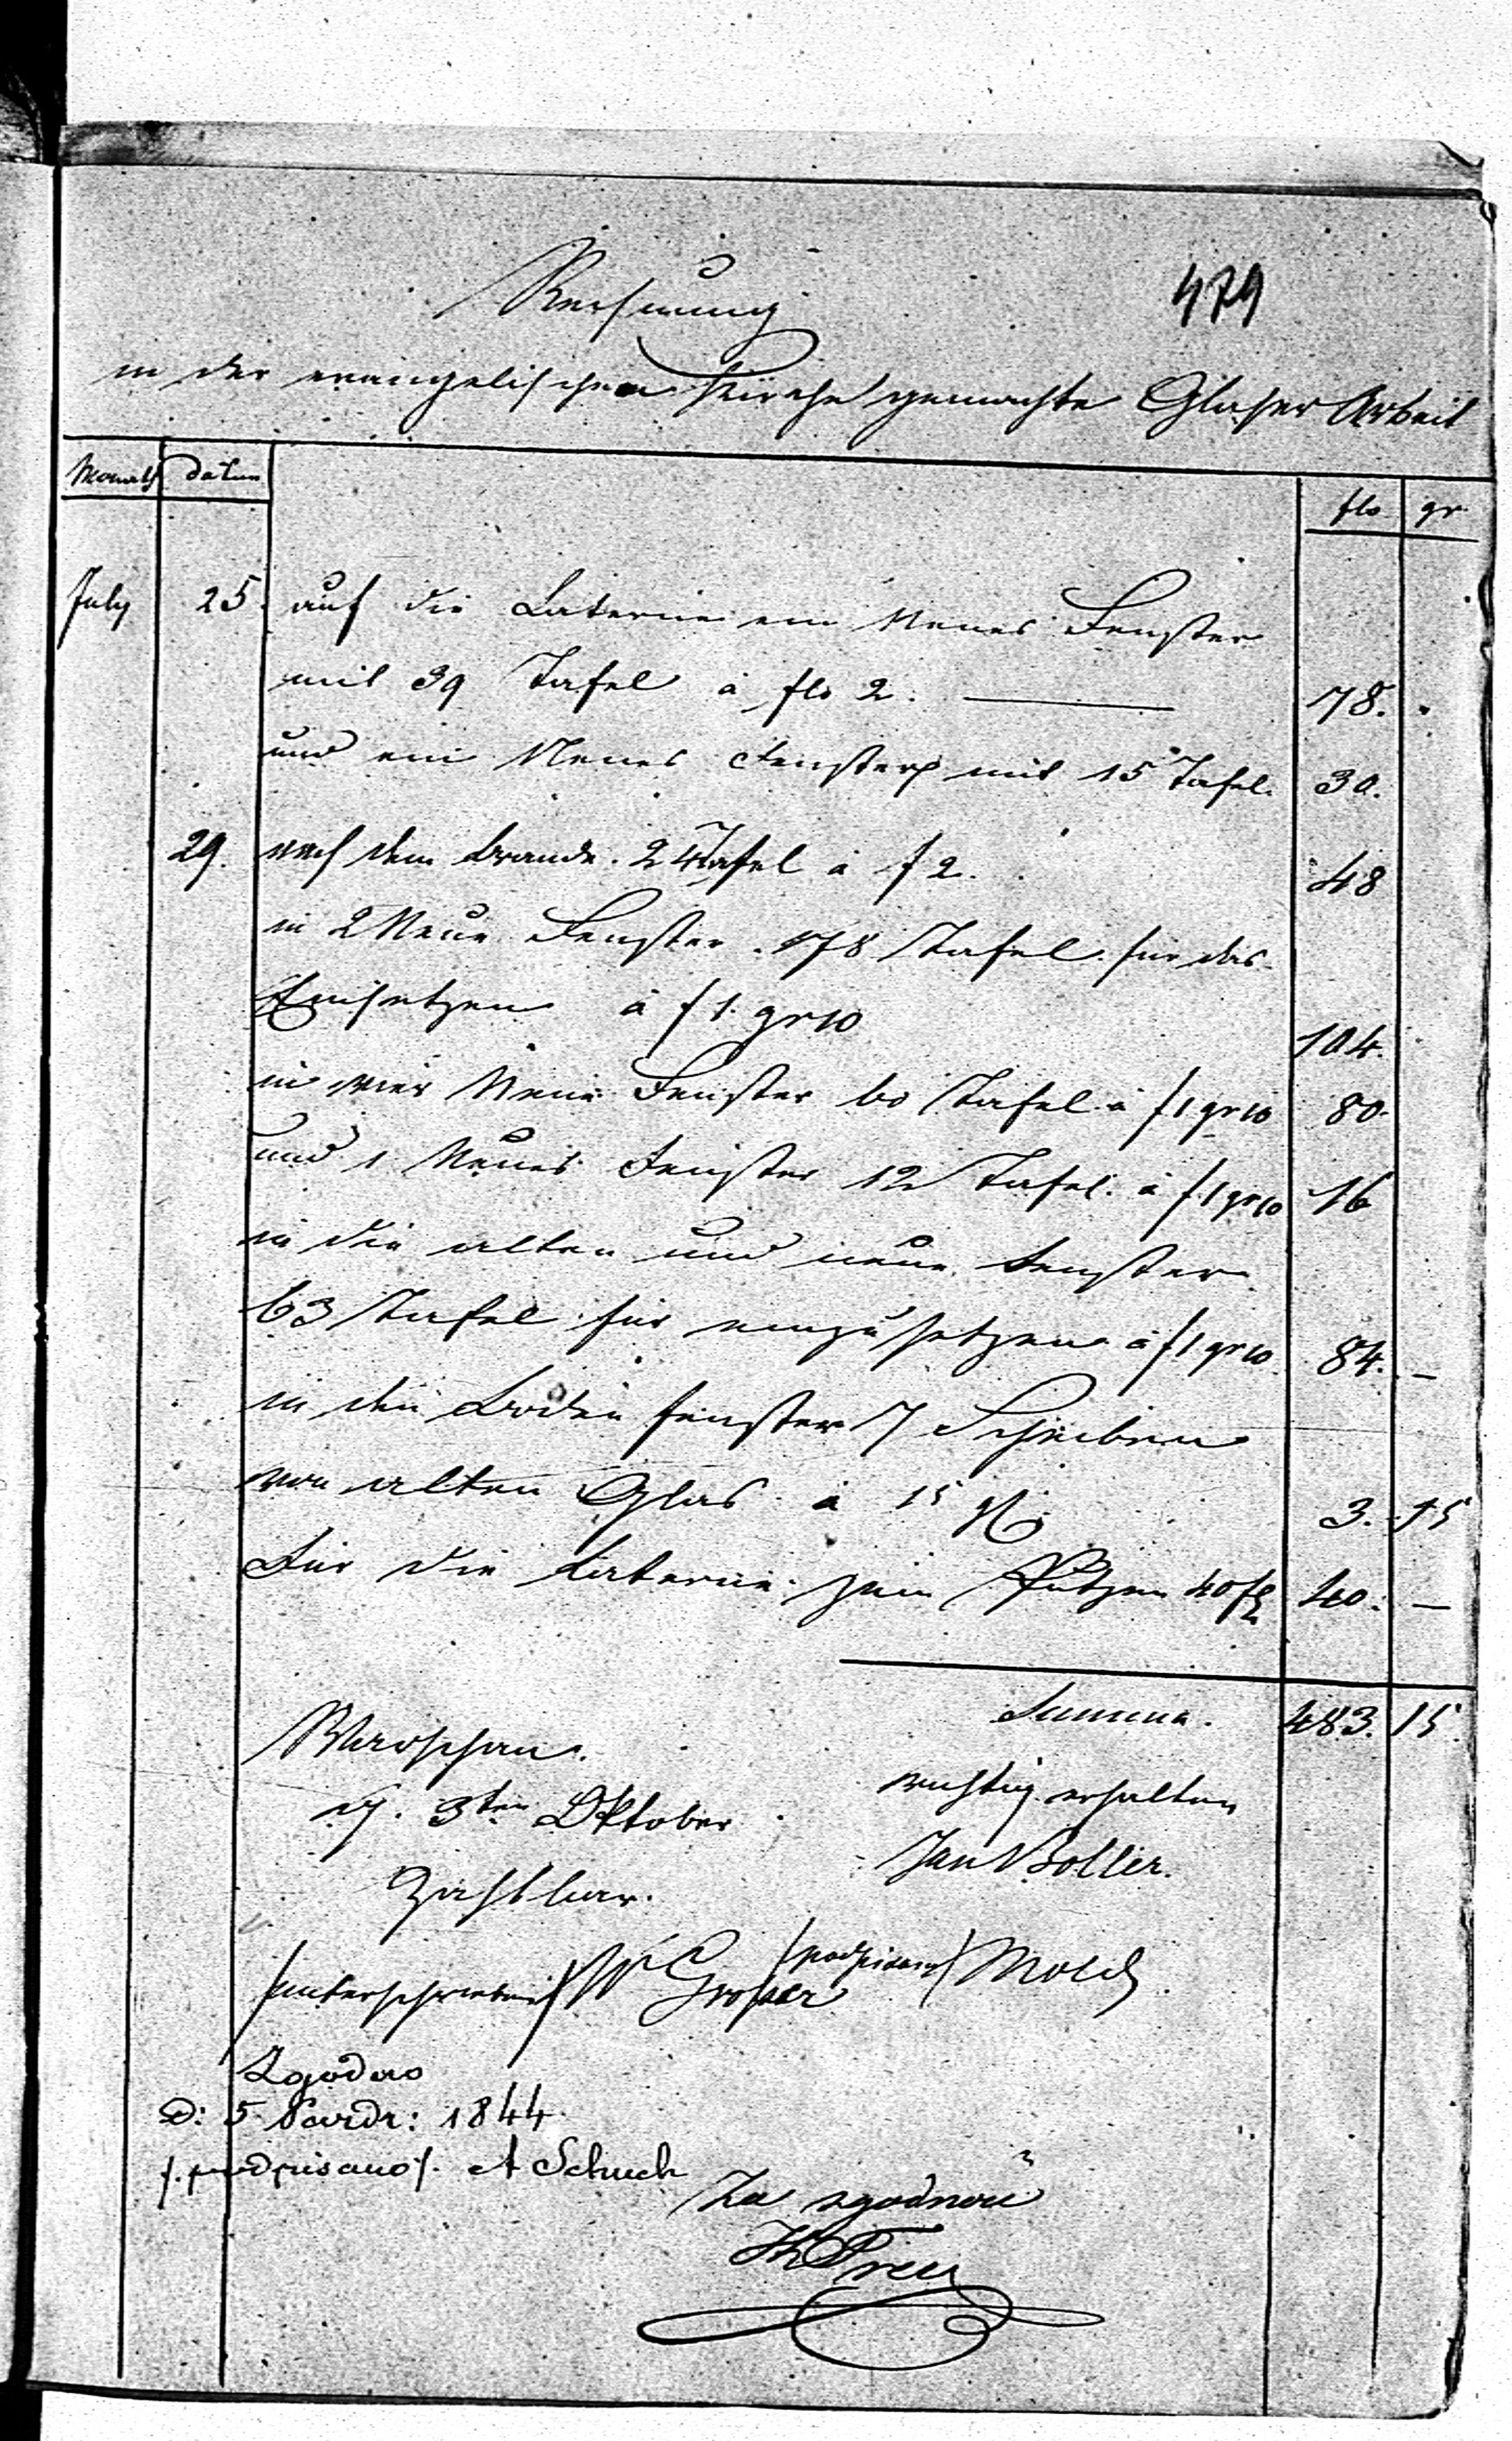 479
Rechnung
in der evangelischen Kirche gemachte Glaser Arbeit
Monath datum flo gr
July 25. auf die Laterne ein Neues Fenster
mit 39 Tafel à flo 2. 78.
und ein Neues Fenster mit 15 Tafel. 30.
29. nach dem Brande. 24 Tafel à f 2. 48
in 2 Neue Fenster 78 Tafel für das
Einsetzen à f 1. gr 10 104.
in vier Neue Fenster 60 Tafel à f 1 gr 10 80.
und 1 Neues Fenster 12 Tafel. à f 1 gr 10 16
in die alten und neue Fenster
63 Tafel für einzusetzen à f 1 gr 10. 84. —
in die Boden fenster 7 Scheiben
von alten Glas à 15 gr 3. 15
Für die Laterne zum Putzen 40 fl 40. —
Summa. 483. 15.
Warschau.
d. 3ten Oktober
richtig erhalten
Jan Boller.
Zahlbar.
/unterschrieben/ W Grosser /podpisany/
Zgodno
D: 5 Pazdr: 1844.
/:podpisano/. A Schuch
Za zgodność